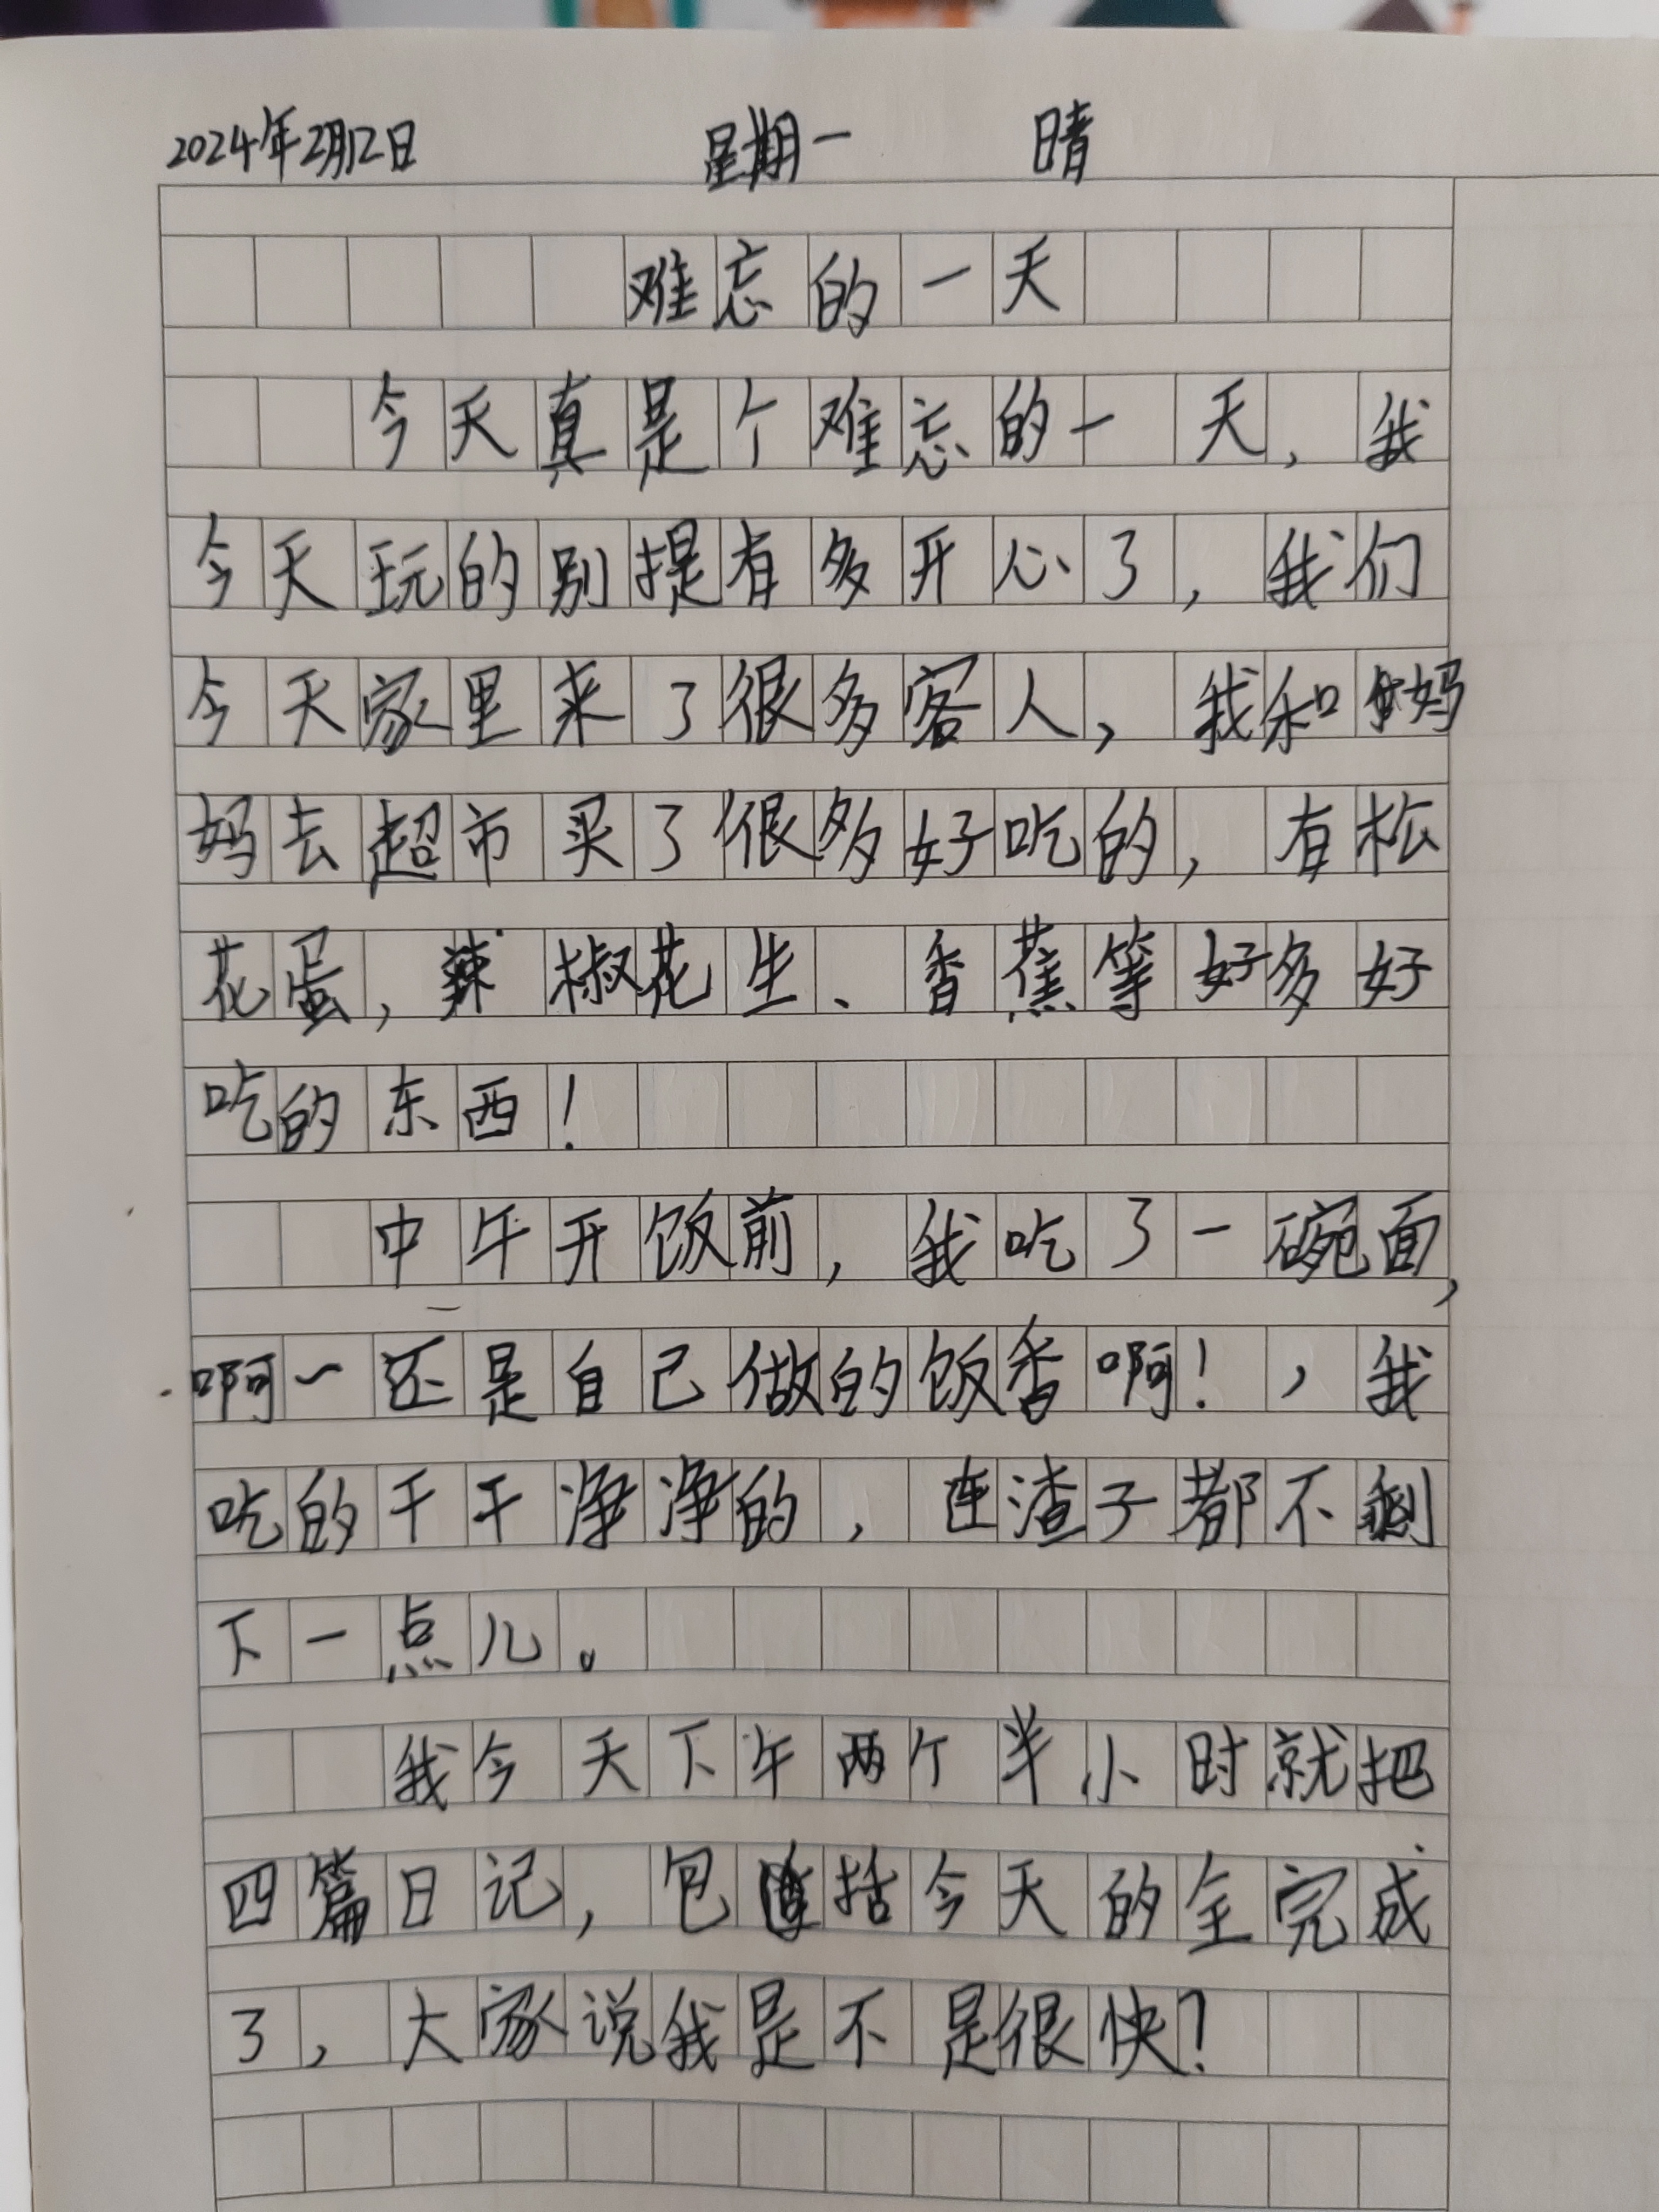 2024年2月12日 星期一 晴
难忘的一天
今天真是个难忘的一天，我
今天玩的别提有多开心了，我们
今天家里来了很多客人，我和妈
妈去超市买了很多好吃的，有松
花蛋，辣椒花生、香蕉等好多好
吃的东西！
中午开饭前，我吃了一碗面，
啊～还是自己做的饭香啊！，我
吃的干干净净的，连渣子都不剩
下一点儿。
我今天下午两个半小时就把
四篇日记，包括今天的全完成
了，大家说我是不是很快？